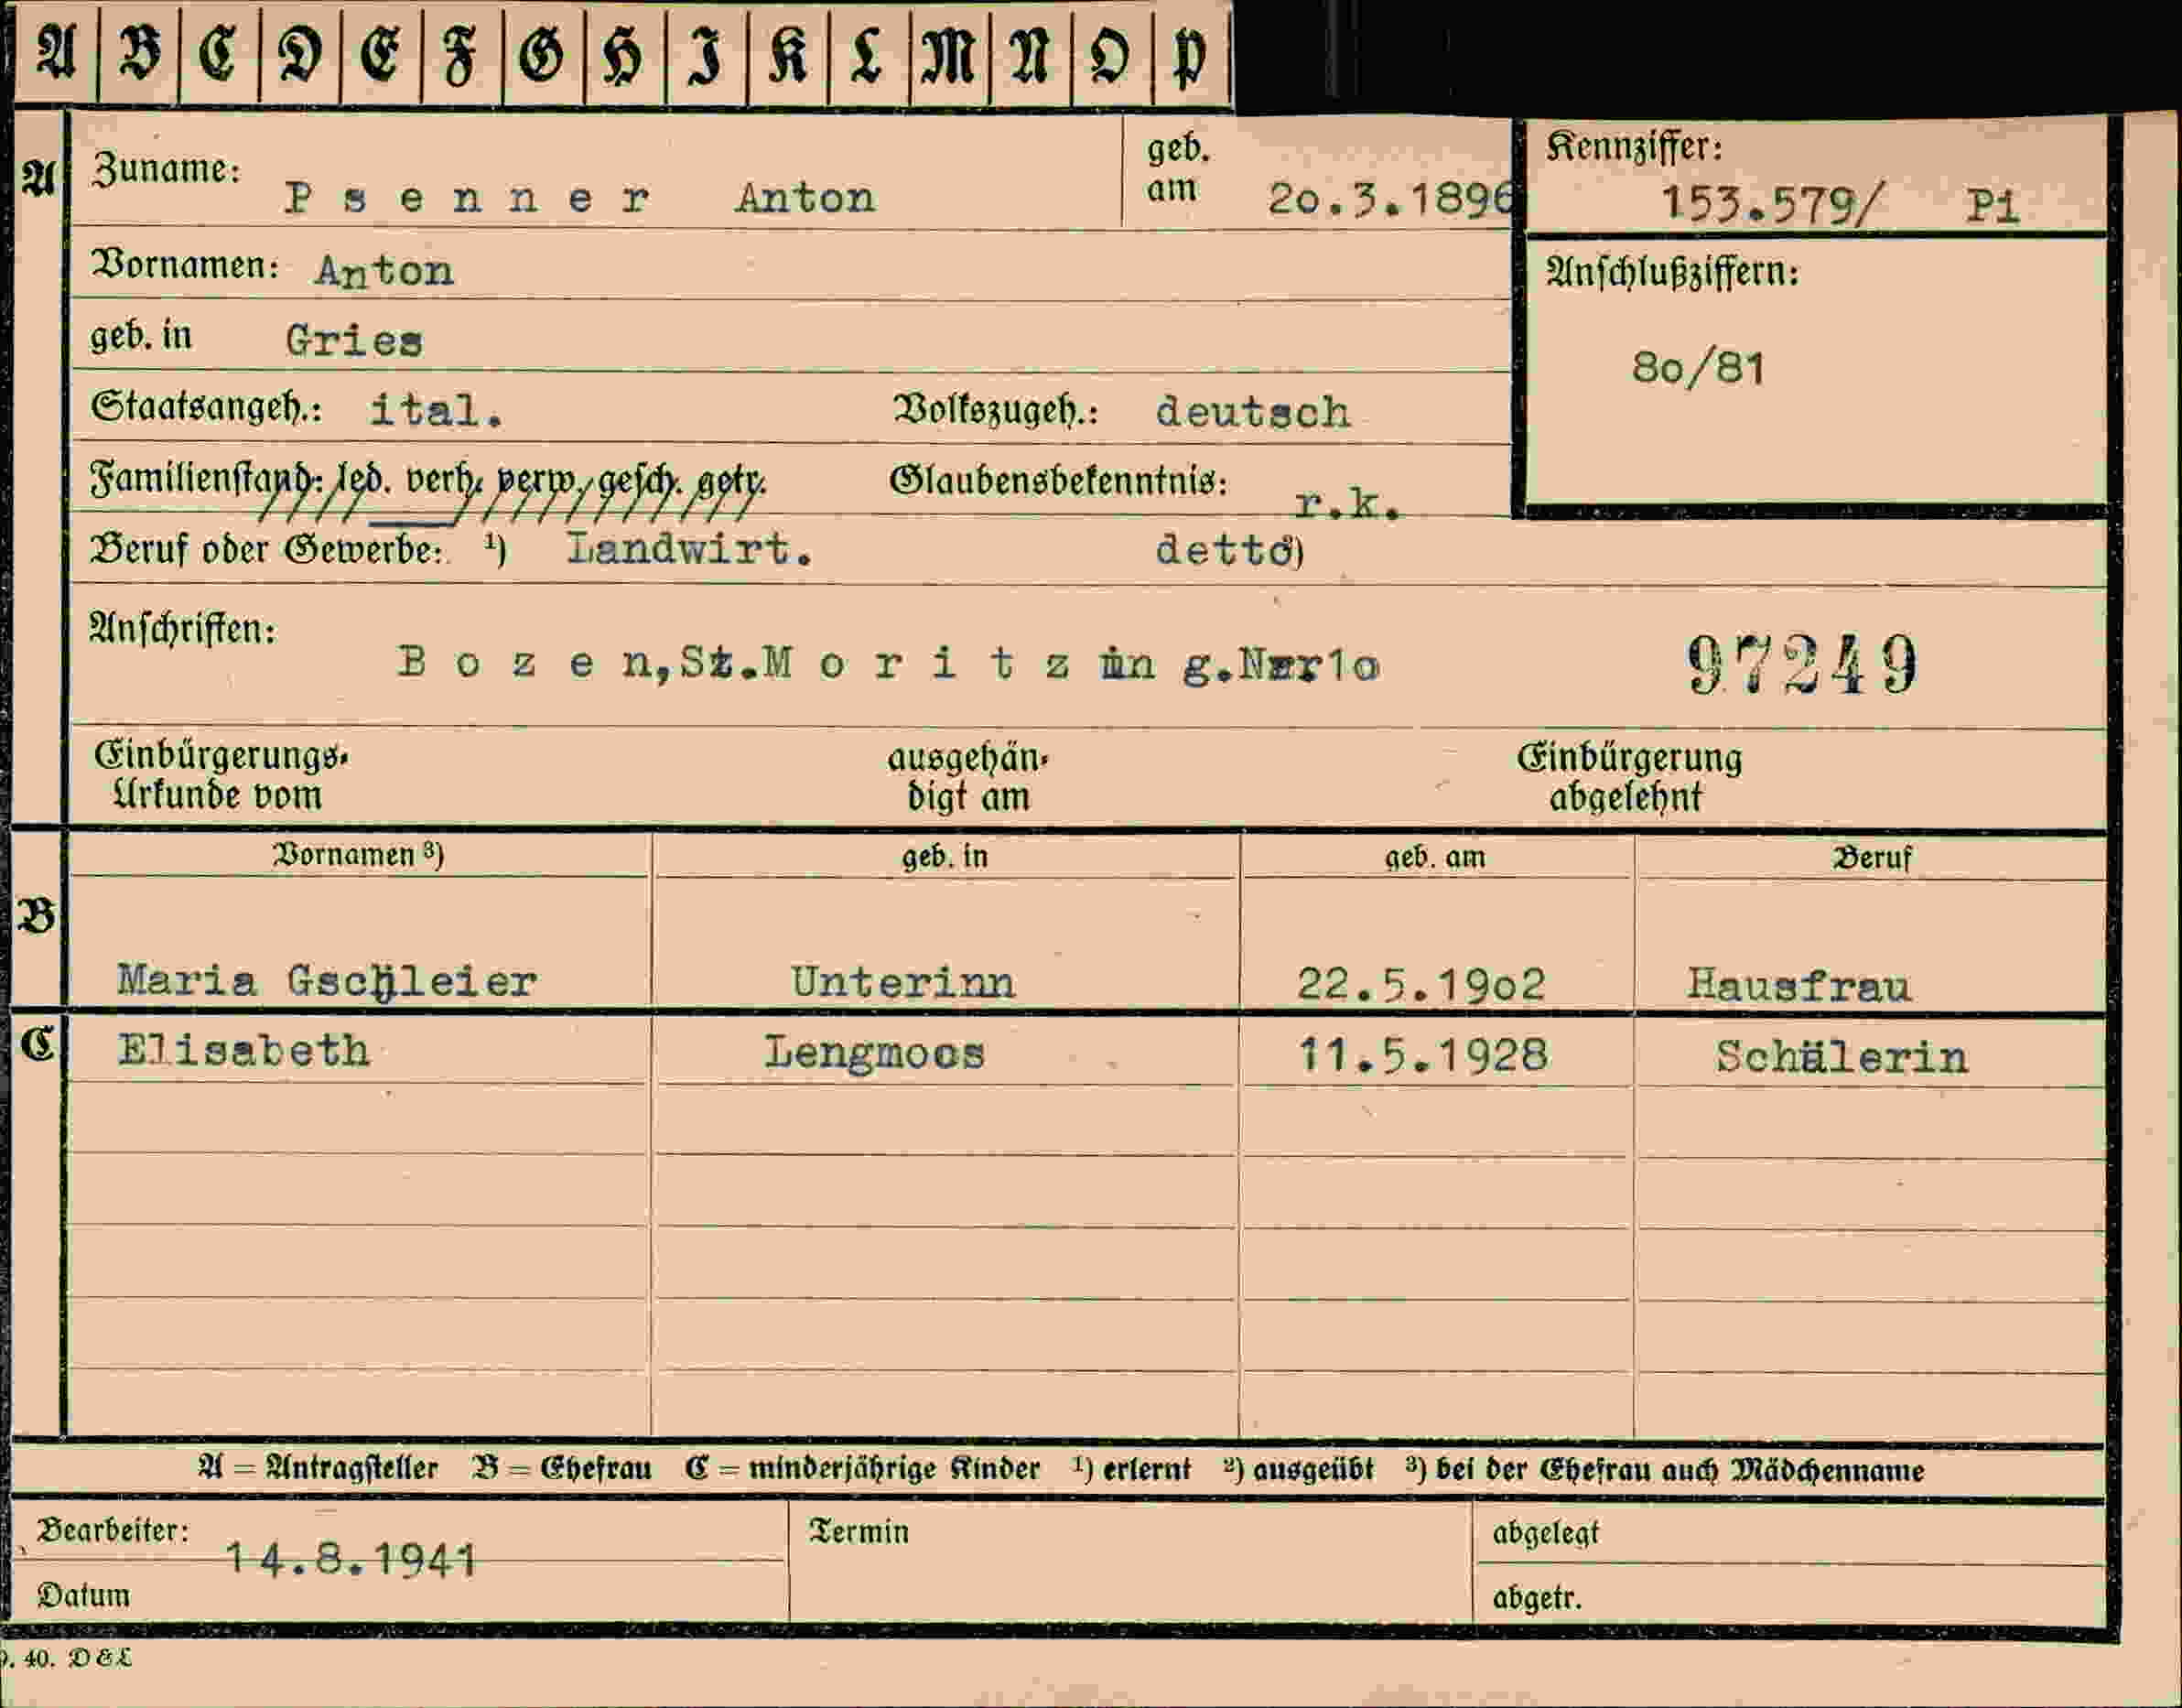 A B C D E F G H I K L M N O P
A Zuname: Psenner Anton geb. am 2o.3.1896 Kennziffer: 153.579/ Pi
Vornamen: Anton Anschlußziffern:
geb. in Gries 8o/81
Staatsangeh.: ital. Volkszugeh.: deutsch
Familienstand: led. verh. verw. gesch. getr. Glaubensbekenntnis: r.k.
Beruf oder Gewerbe: ¹) Landwirt. detto)
Anschriften:
Bozen,St.Moritzing. 1o 97249
Einbürgerungs- ausgehän- Einbürgerung
Urkunde vom digt am abgelehnt
Vornamen ³) geb. in geb. am Beruf
B
Maria Gschleier Unterinn 22.5.19o2 Hausfrau
C Elisabeth Lengmoos 11.5.1928 Schülerin
A = Antragsteller B = Ehefrau C = minderjährige Kinder ¹) erlernt ²) ausgeübt ³) bei der Ehefrau auch Mädchenname
Bearbeiter: Termin abgelegt
14.8.1941
Datum abgetr.
40. D&L